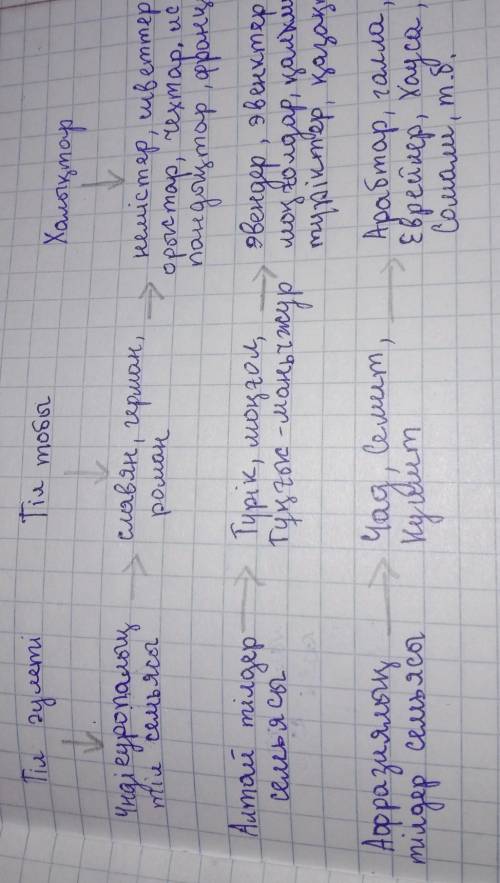 Тіл әулеті
Тіл тобы
Халықтар
Үндіеуропалық
тіл семьясы
славян, герман,
роман
немістер, шветтер
орыстар, чехтар, ис
пандықтар, франц
Алтай тілдер
семьясы
Түрік, моңғол,
Тұңғыс-маньчжур
эвендер, эвенктер
моңғолдар, қалм
түріктер, қазақ
Афразиялық
тілдер семьясы
Чад, Семит,
Кушит
Арабтар, галла,
Еврейлер, Хауса,
Сомали, т.б.